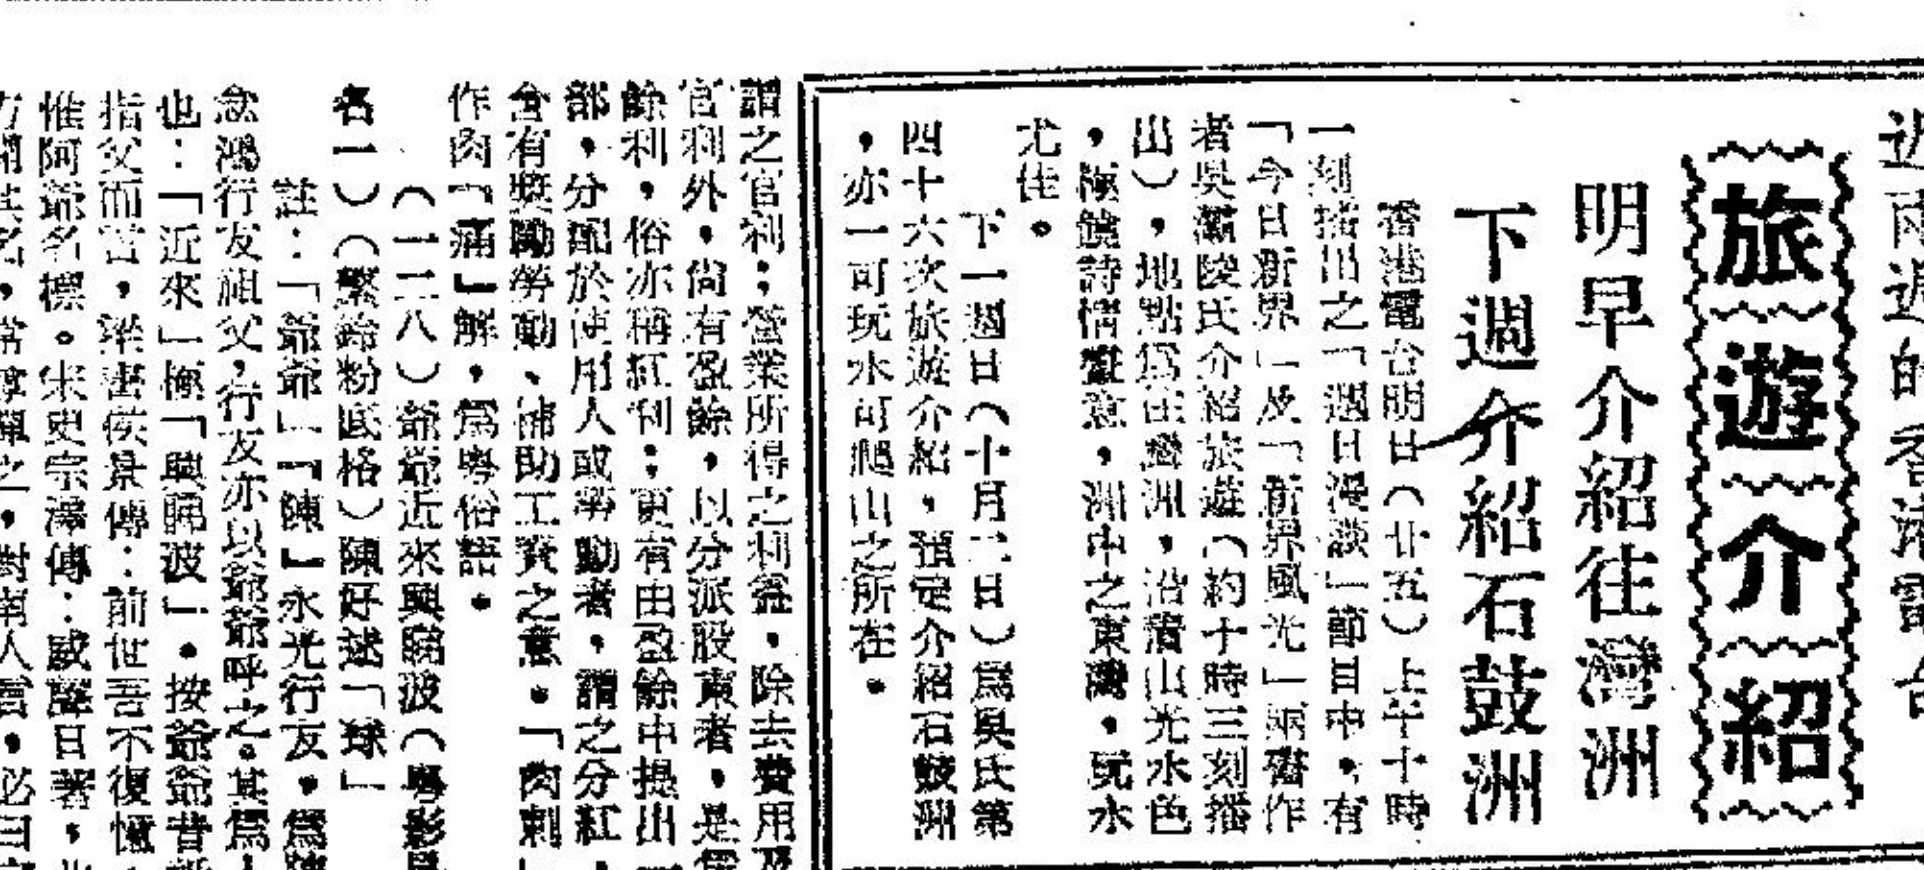 旅遊介紹
明早介紹往灣洲
下週介紹石鼓洲
香港電台明日（廿五）上午十時
一刻播出之「週日漫談」節目中，有
「今日新界」及「新界風光」兩書作
者吳灞陵氏介紹旅遊（約十時三刻播
出），地點爲往灣洲，沿灣山光水色
，極饒詩情畫意，洲中之東灣，玩水
尤佳。
下一週日（十月二日）爲吳氏第
四十六次旅遊介紹，預定介紹石鼓洲
，亦一可玩水可爬山之所在。
謂之官利；營業所得之利益，除去費用及
官利外，尚有盈餘，以分派股東者，是
餘利，俗亦稱紅利；更有由盈餘中提出一
部，分配於使用人或勞動者，謂之分紅，
含有獎勵勞動、補助工資之意。「肉刺」
作肉「痛」解，爲粵俗語。
（一二八）爺爺近來興睇波（粵影
名一）（繁鈴粉底格）陳好逑「球」
註：「爺爺」「陳」永光行友，爲
念鴻行友祖父，行友亦以爺爺呼之。其爲
也：「近來」極「興睇波」。按爺爺昔
指父而言，梁書侯景傳：前世吾不復憶，
惟阿爺名標。宋史宗澤傳：威聲日著，北
方聞其名，常尊憚之，對南人言，必曰